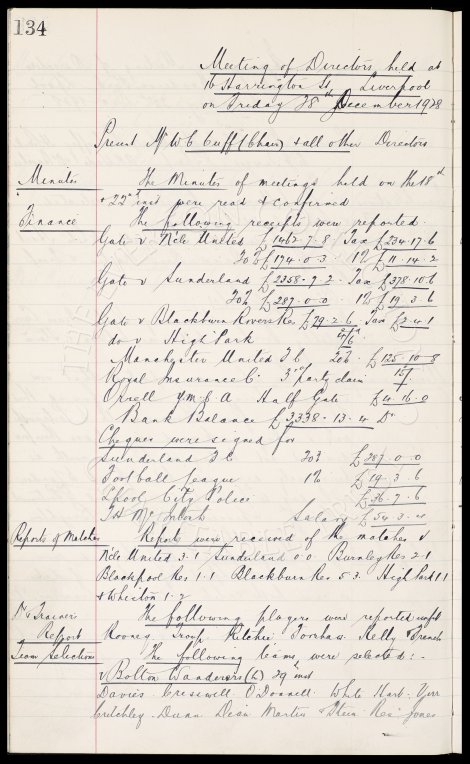 134
Meeting of Directors held at
16 Harrington St, Liverpool
on Friday 28th December 1928
Present Mr W C Cuff (Chair) & all other Directors
Minutes The Minutes of meetings held on the 18th
& 22nd inst were read & confirmed
Finance The following receipts were reported.
Gate v N'cle United £1462.7.8 Tax £234.17.6
20% £174.0.3 1% £11.14.2
Gate v Sunderland £2358.9.2 Tax £378.10.6
20% £287.0.0 1% £19.3.6
Gate v Blackburn Rovers Res £79.2.6 Tax £2.4.1
do v High Park 4/6
Manchester United F.C 20% £125.10.8
Royal Insurance Co 3rd party claim 15/-
Orrell Y.M.C.A Half Gate £4.16.0
Bank Balance £3338.13.4 Dr
Cheques were signed for
Sunderland F C 20% £287.0.0
Football League 1% £19.3.6
L'pool City Police £36.7.6
T H McIntosh Salary £54.3.4
Reports of Matches Reports were received of the matches v
N'cle United 3.1 Sunderland 0.0 Burnley Res 2-1
Blackpool Res 1.1 Blackburn Res 5.3 High Park 1.1
& Whiston 1.2
Dr & Trainer's The following players were reported unfit
Report Rooney, Troup Ritchie Kelly & French
Team Selection The following teams were selected:-
v Bolton Wanderers (L) 29th inst
Davies Cresswell O'Donnell White Hart
Critchley Dunn Dean Martin & Stein Res Jones